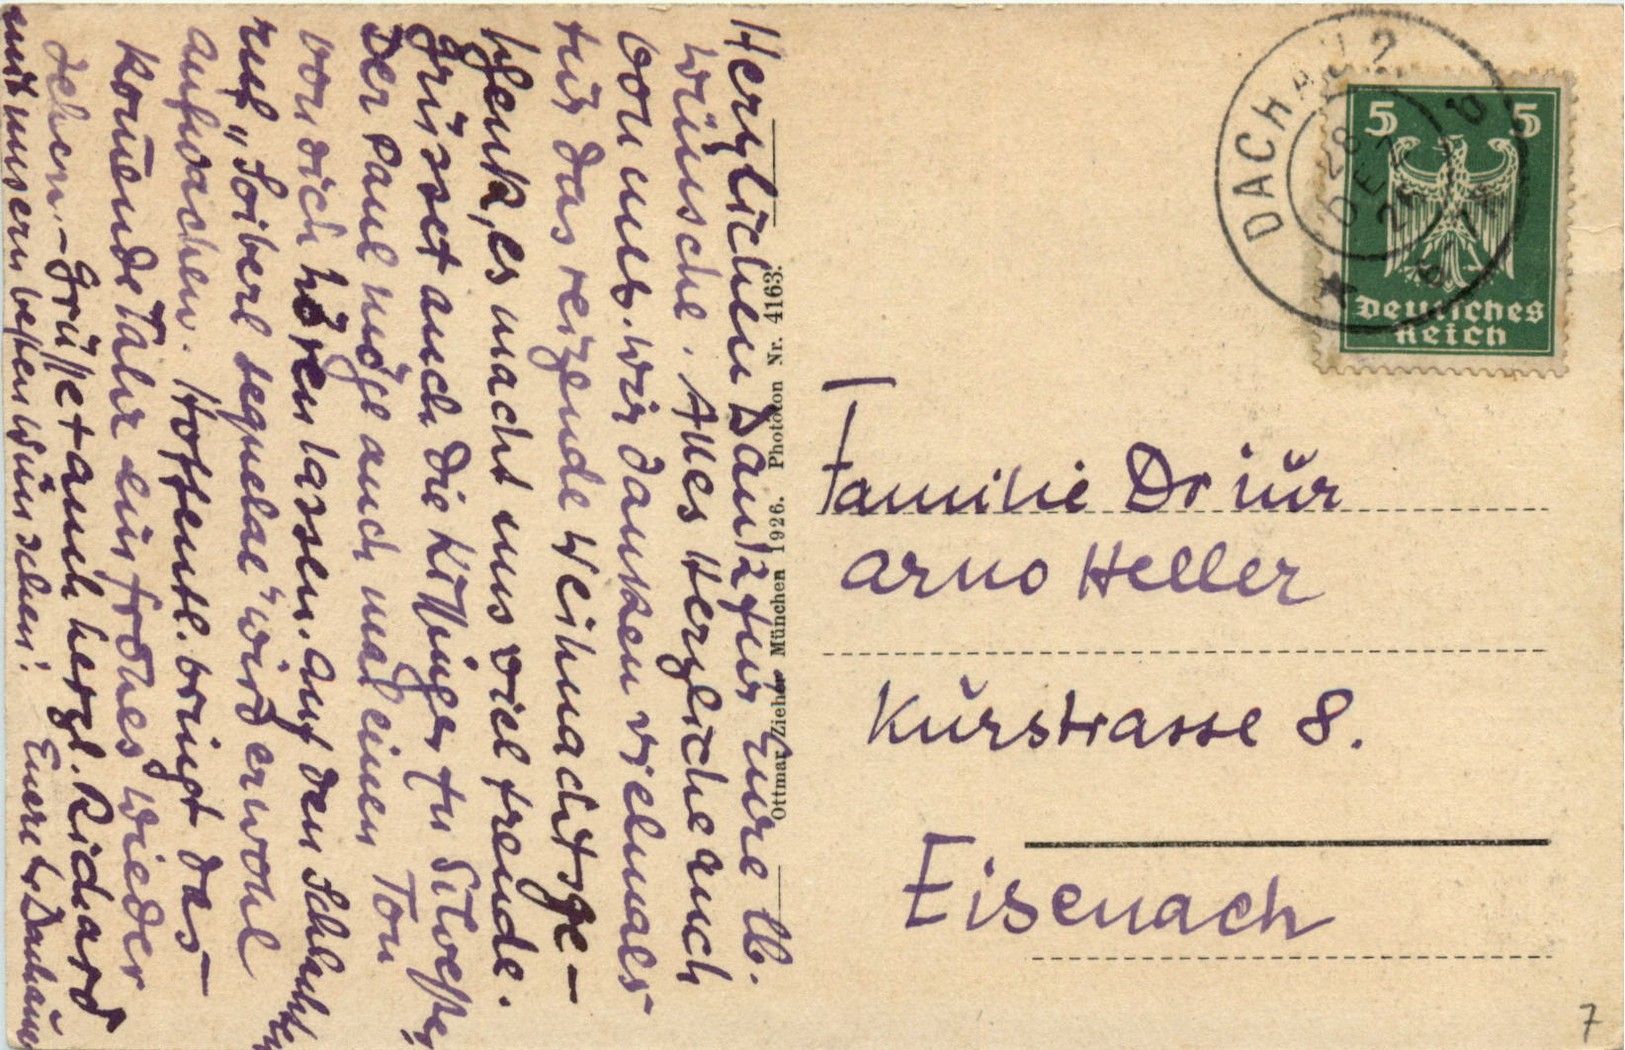 Herzlichen Dank für Eure lb.
Wünsche. Alles Herzliche auch
von uns. Wir danken vielmals
für das reizende Weihnachtsge-
schenk, es macht uns viel Freude.
Grüsset auch die Kittinger zu Silvester
Der Paul möge auch mal einen Ton
von sich hören lassen. Auf den Schlacht
ruf „Soiberl sequelae" wird er wohl
aufwachen. Hoffentl. bringt das
kom̅ende Jahr ein frohes Wieder
sehen. - Grüsset auch herzl. Richard
mit unsern besten Wünschen! Eure Dachauer
Ottmar Zieher München 1926. Phototon Nr. 4163.
DACHAU 2
28
DEZ
26
5 5
Deutsches
Reich
Familie Dr iur
Arno Heller
Kurstrasse 8.
Eisenach
7